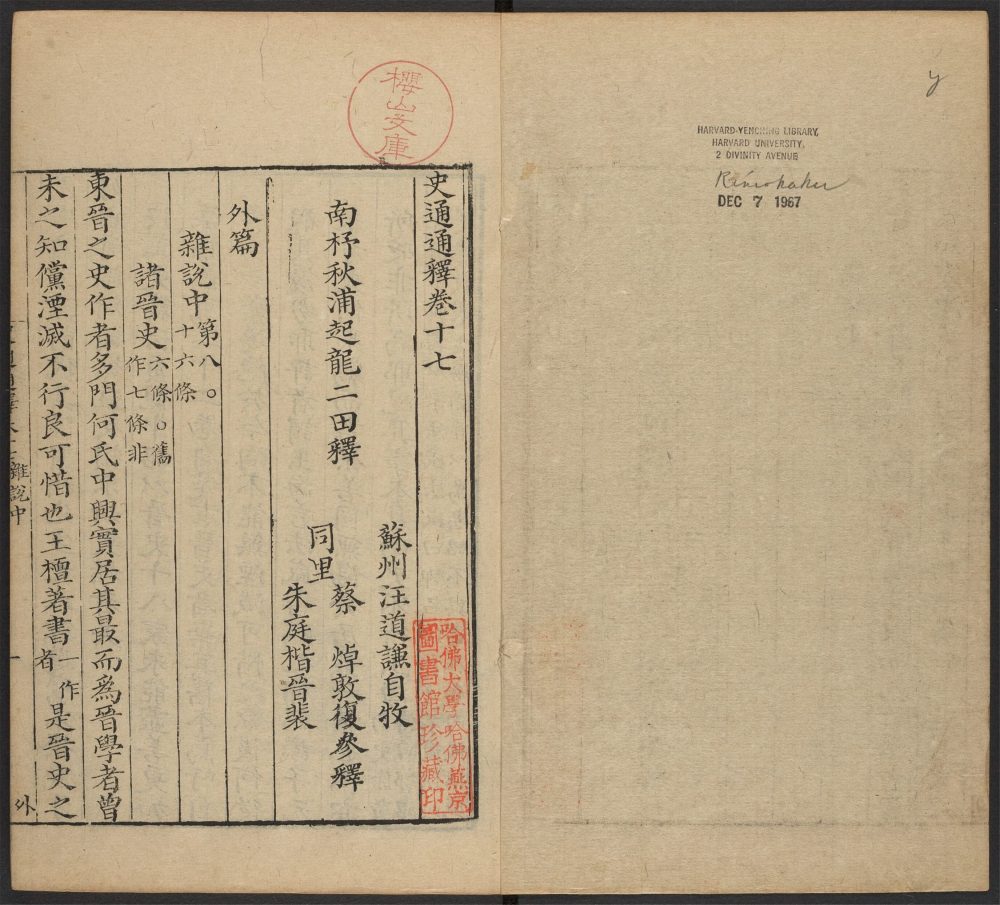 HARVARD-YENCHING LIBRARY,
HARVARD UNIVERSITY,
2 DIVINITY AVENUE
DEC 7 1967
櫻山文庫
史通通釋卷十七
蘇州汪道謙自牧
南杼秋浦起龍二田釋
蔡焯敦復參釋
同里
朱庭楷晉裴
外篇
雜說中第八。十六條
諸晉史六條。舊作七條非
東晉之史作者多門何氏中興實居其最而爲晉學者曾
未之知儻湮滅不行良可惜也王檀著書一作者是晉史之
雜說中
一
外
哈佛大學哈佛燕京
圖書館珍藏印